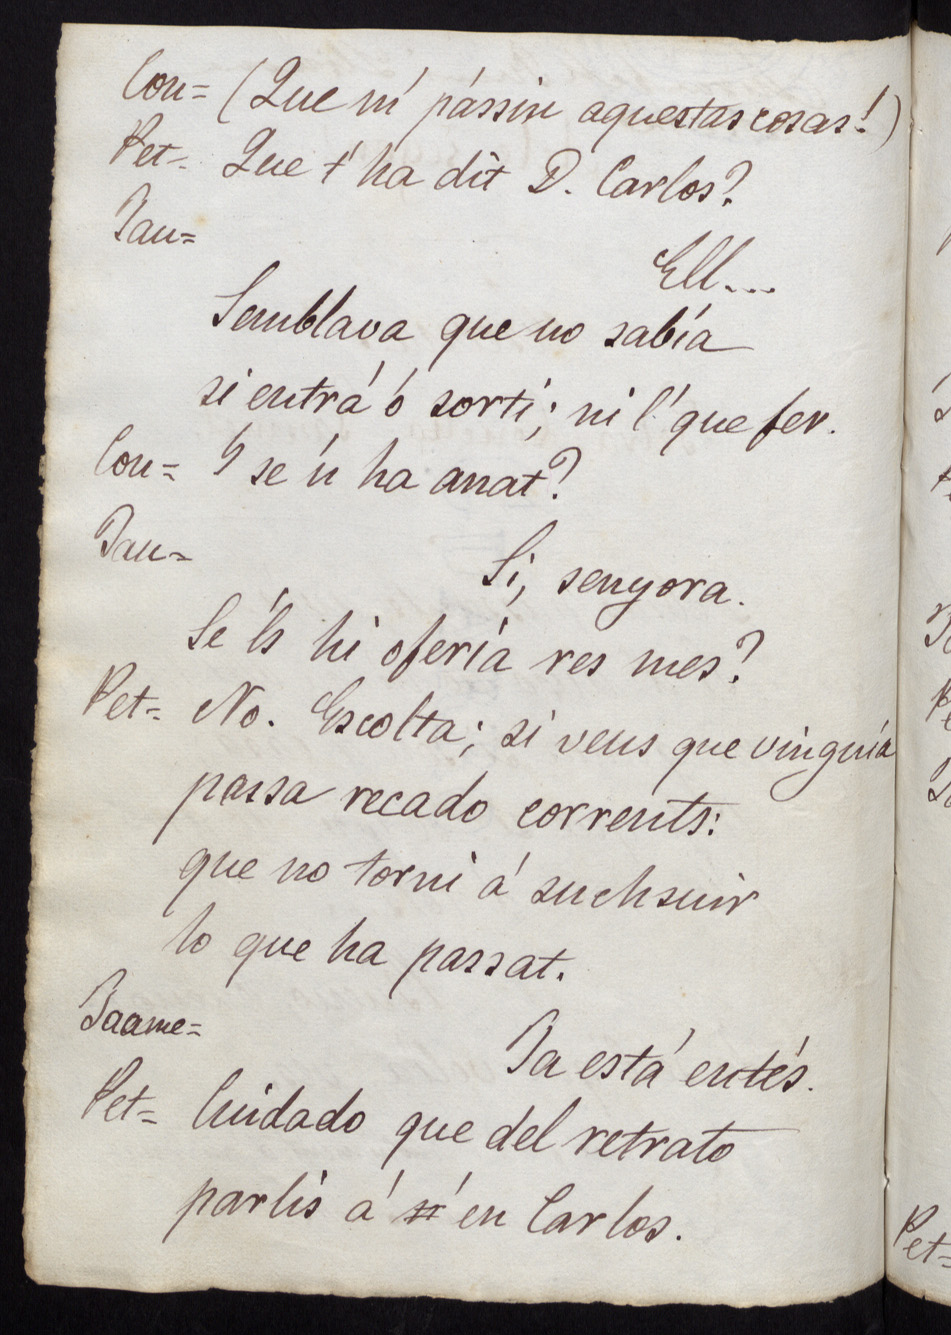 Con= (Que m' pássin aquestas cosas!)
Pet- Que t' ha dit D. Carlos?
Jau=
Ell....
Semblava que no sabía
si entrá ó sortí; ni l' que fer.
Con= Y se 'n ha anat?
Jau=
Si, senyora.
Se 'ls hi oferia res mes?
Pet= No. Escolta; si veus que vinguía
passa recado corrents:
que no torni á suchsuir
lo que ha passat.
Jaame=
Ja está entés.
Pet= Cuidado que del retrato
parlis á n' en Carlos.
Pet=